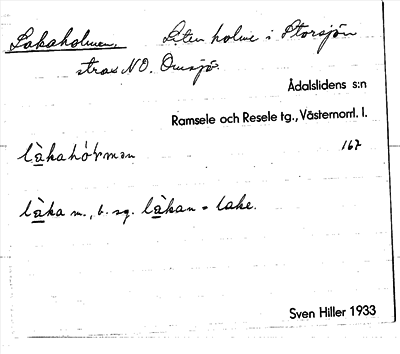 Lakaholmen, Liten holme i Storsjön
strax NO. Omsjö.
Ådalslidens s:n
Ramsele och Resele tg., Västernorrl. l.
167
la̱ka m., b. sg. la̱kan = lake.
Sven Hiller 1933